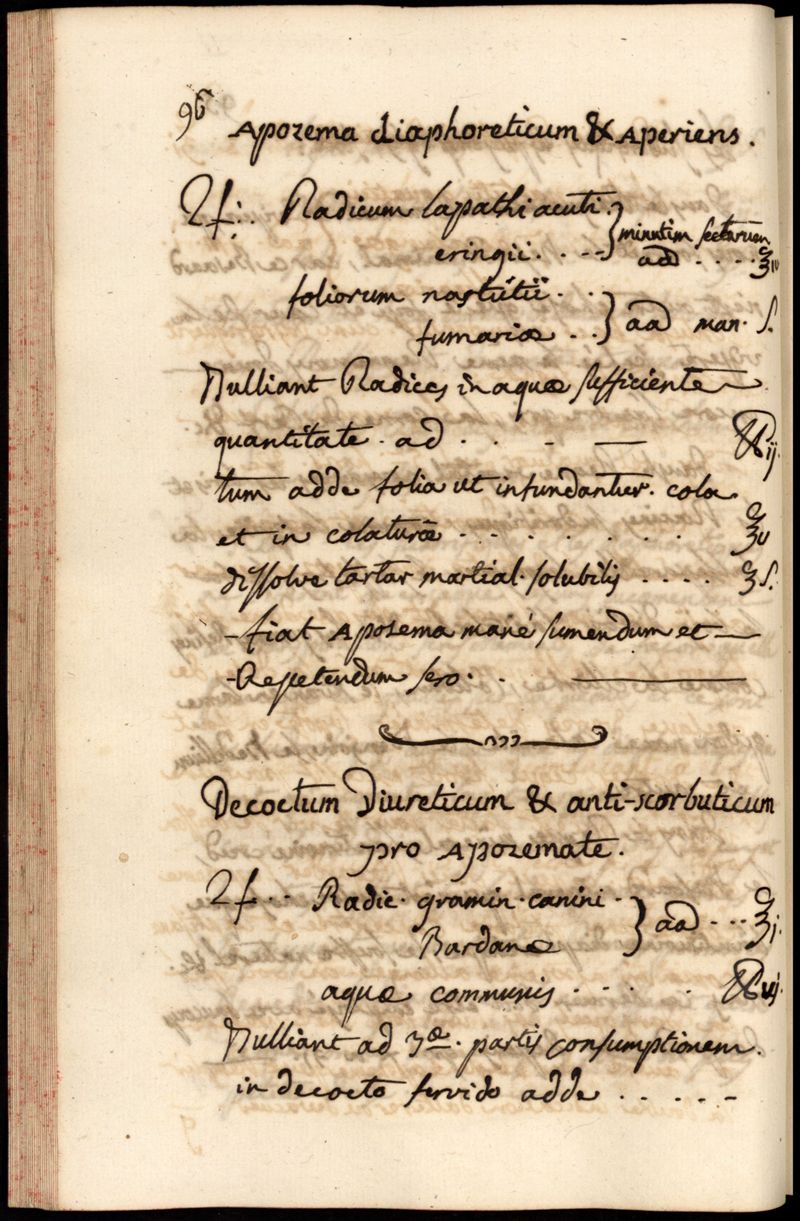 96
Apozema diaphoreticum & Aperiens.
♃:. Radicum lapathi acuti.
eringii. . -- } minutim sectarum
aā . . . . ℥iv
foliorum nastutii . . .
fumariæ . . } aā man. ſ.
Bulliant Radices in aquæ sufficiente
quantitate . ad . . - — ℔ij.
tum adde folia ut infundantur. cola
et in colaturæ . . . . . . . ℥v
dissolve tartar martial. solubilis . . . . ʒ ſ.
- fiat Apozema mané sumendum et —
- Repetendum sero. . ———
Decoctum Diureticum & anti-scorbuticum
pro Apozemate.
♃. . Radic. gramin. canini .
Bardanæ } aā . . . ℥j.
aquæ communis . . . . ℔iij.
Bulliant ad 3æ. partis consumptionem.
in decocto fervido adde . . . . . -